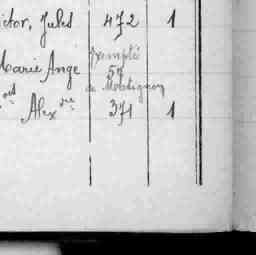 ictor, Jules 472 1
exempté
Marie Ange 57
de Montignon
Alexdre 371 1